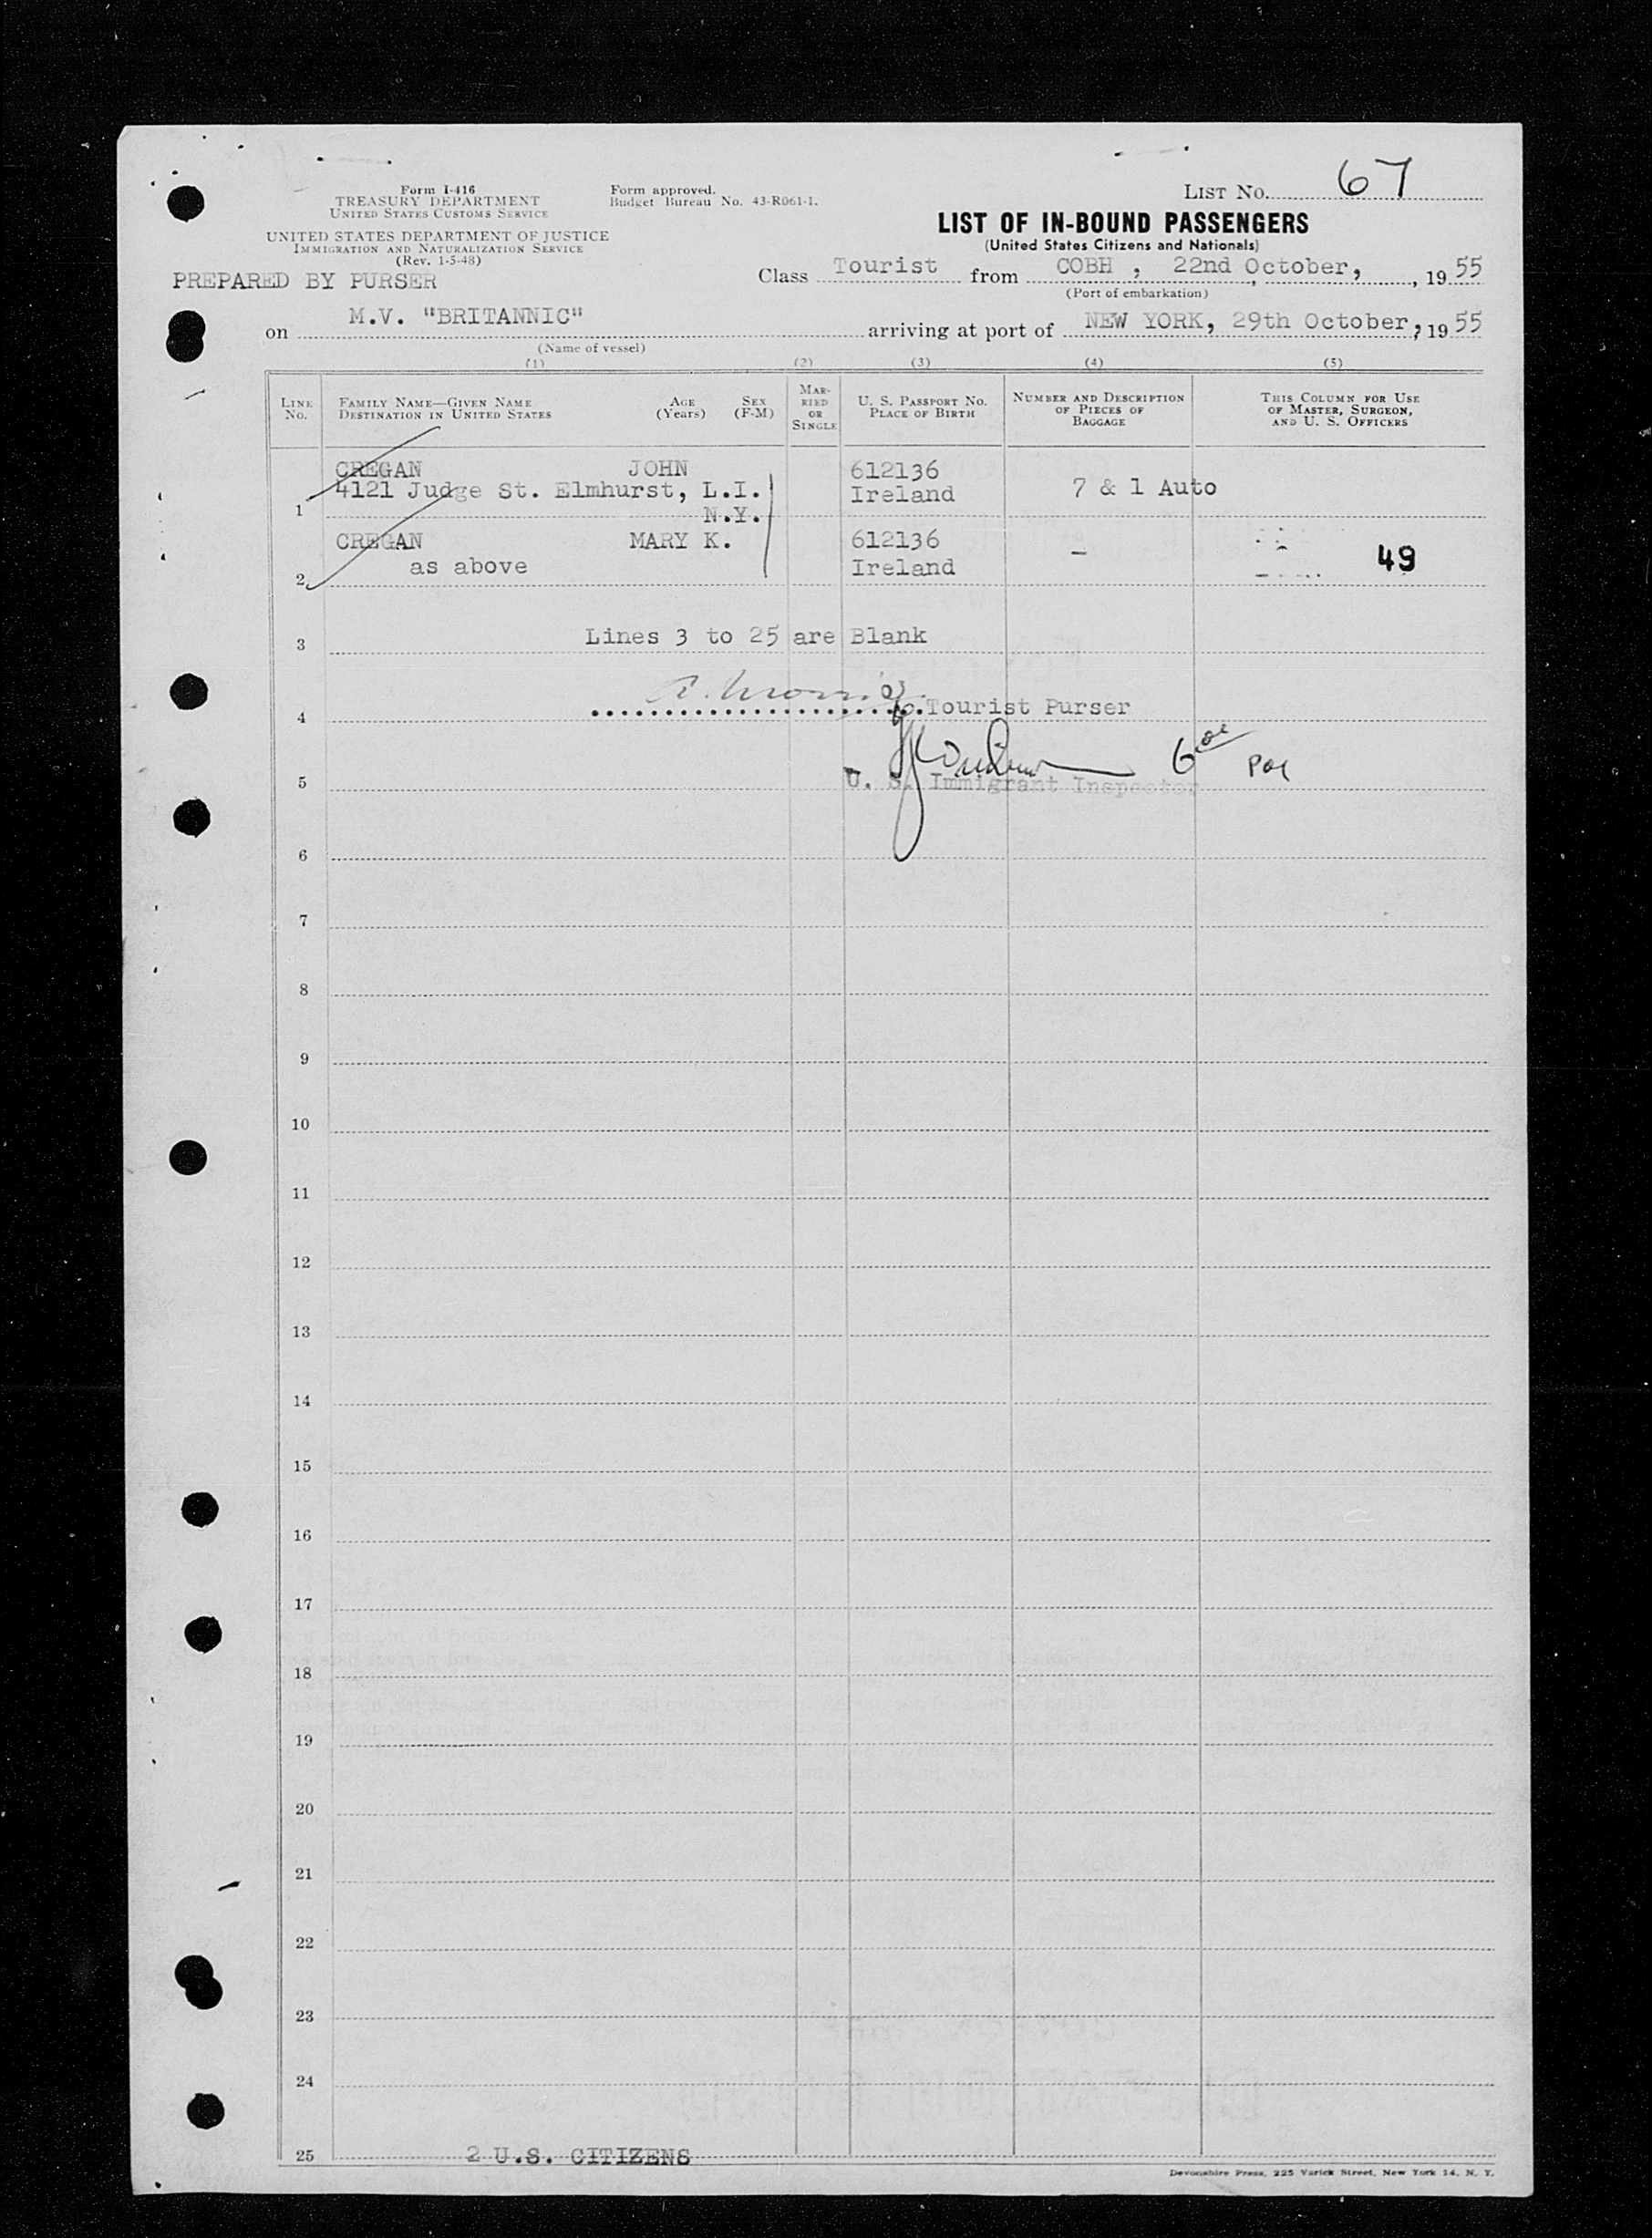 LIST NO. 67
Form I-416
TREASURY DEPARTMENT
UNITED STATES CUSTOMS SERVICE
Form approved.
Budget Bureau No. 43-R061-1.
LIST OF IN-BOUND PASSENGERS
(United States Citizens and Nationals)
UNITED STATES DEPARTMENT OF JUSTICE
IMMIGRATION AND NATURALIZATION SERVICE
(Rev. 1-5-48)
PREPARED BY PURSER
Class Tourist from COBH , 22nd October, , 1955
(Port of embarkation)
on M.V. "BRITANNIC" arriving at port of NEW YORK, 29th October, 1955
(Name of vessel)
(1) (2) (3) (4) (5)
LINE No. FAMILY NAME—GIVEN NAME DESTINATION IN UNITED STATES AGE (Years) SEX (F-M) MARRIED OR SINGLE U. S. PASSPORT NO. PLACE OF BIRTH NUMBER AND DESCRIPTION OF PIECES OF BAGGAGE THIS COLUMN FOR USE OF MASTER, SURGEON, AND U. S. OFFICERS
CREGAN JOHN 612136
4121 Judge St. Elmhurst, L.I. Ireland 7 & 1 Auto
1 N.Y.
CREGAN MARY K. 612136 -
as above Ireland 49
2
3 Lines 3 to 25 are Blank
4 Tourist Purser
5 U. S. Immigrant Inspector
6
7
8
9
10
11
12
13
14
15
16
17
18
19
20
21
22
23
24
25 2 U.S. CITIZENS
Devonshire Press, 225 Varick Street, New York 14, N. Y.